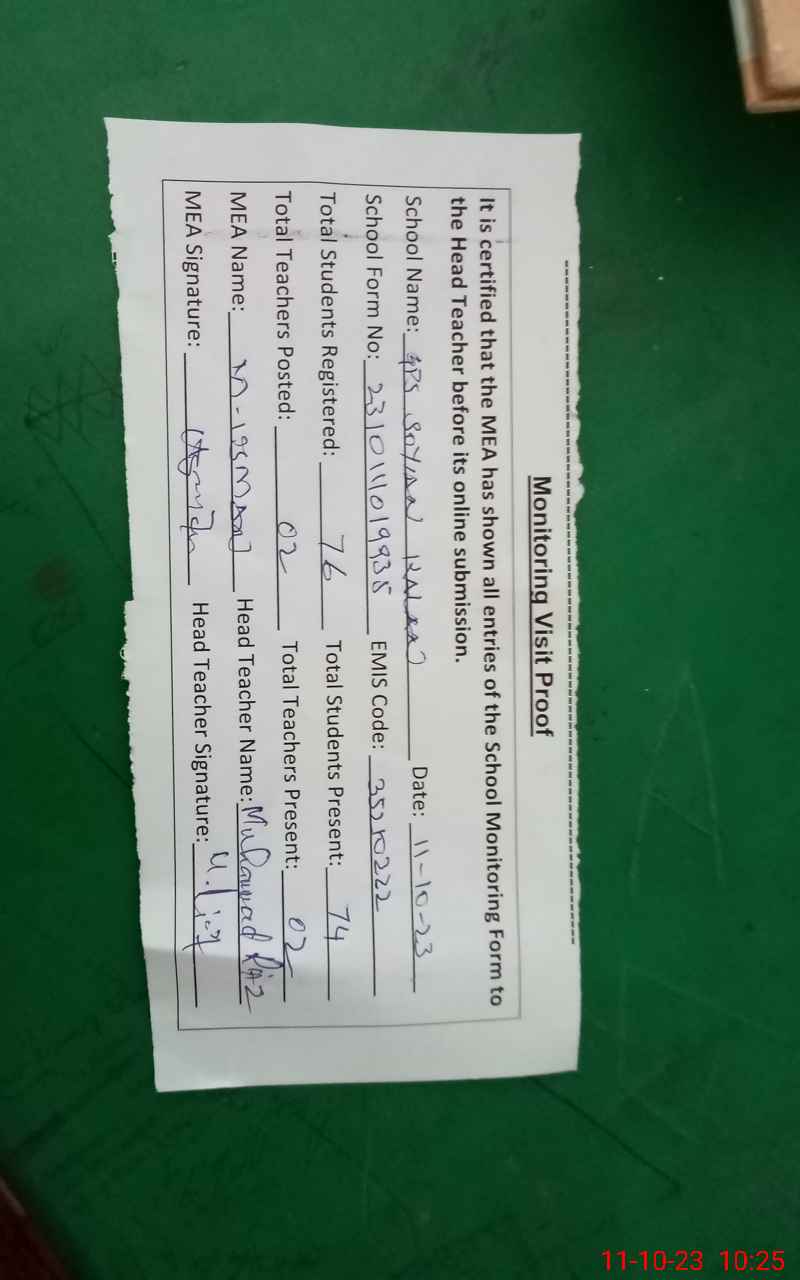 Monitoring Visit Proof
It is certified that the MEA has shown all entries of the School Monitoring Form to
the Head Teacher before its online submission.
School Name: GPS Kalan Date: 11-10-23
School Form No: EMIS Code: 35210222
Total Students Registered: 76 Total Students Present: 74
Total Teachers Posted: 02 Total Teachers Present: 02
MEA Name: Head Teacher Name: Muhammad Riaz
MEA Signature: Head Teacher Signature:
11-10-23 10:25